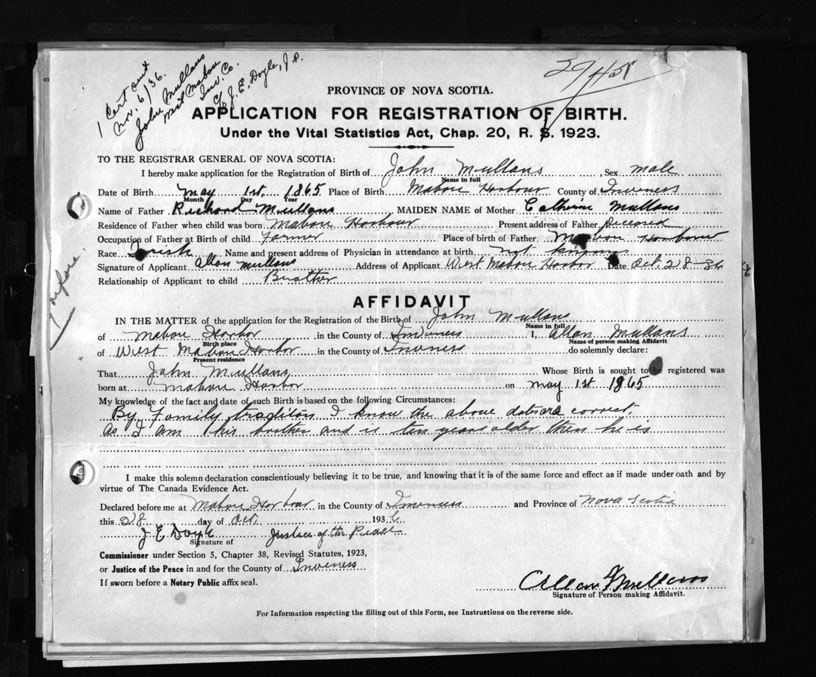 1 Cert cut
Nov. 6/36.
John Mullans
West Mabou
Inv. Co.
c/o J. E. Doyle, J.P.
2945
before.
PROVINCE OF NOVA SCOTIA.
APPLICATION FOR REGISTRATION OF BIRTH.
Under the Vital Statistics Act, Chap. 20, R. S. 1923.
TO THE REGISTRAR GENERAL OF NOVA SCOTIA:
I hereby make application for the Registration of Birth of John Mullans, Sex male
Name in full
Date of Birth May 1st 1865 Place of Birth Mabou Harbour County of Inverness
Month Day Year
Name of Father Richard Mullans, MAIDEN NAME of Mother Catherine Mullans
Residence of Father when child was born Mabou Harbour Present address of Father
Occupation of Father at Birth of child Farmer Place of birth of Father Mabou Harbour
Race Irish Name and present address of Physician in attendance at birth not known
Signature of Applicant Allan Mullans Address of Applicant West Mabou Harbor Date Oct. 28-36
Relationship of Applicant to child Brother
AFFIDAVIT
IN THE MATTER of the application for the Registration of the Birth of John Mullans
Name in full
of Mabou Harbor in the County of Inverness I, Allan Mullans
Birth place Name of person making Affidavit
of West Mabou Harbor in the County of Inverness do solemnly declare:
Present residence
That John Mullans Whose Birth is sought to be registered was
born at Mabou Harbor on May 1st 1865
My knowledge of the fact and date of such Birth is based on the following Circumstances:
By Family traditons I know the above dats are correct.
as I am his brother and is ten years older then he is
I make this solemn declaration conscientiously believing it to be true, and knowing that it is of the same force and effect as if made under oath and by
virtue of The Canada Evidence Act.
Declared before me at Mabou Harbour in the County of Inverness and Province of Nova Scotia
this 28 day of Oct. 1936
J. E. Doyle Justice of the Peace
Signature of
Commissioner under Section 5, Chapter 38, Revised Statutes, 1923,
or Justice of the Peace in and for the County of Inverness
If sworn before a Notary Public affix seal.
Allan J Mullans
Signature of Person making Affidavit.
For Information respecting the filling out of this Form, see Instructions on the reverse side.